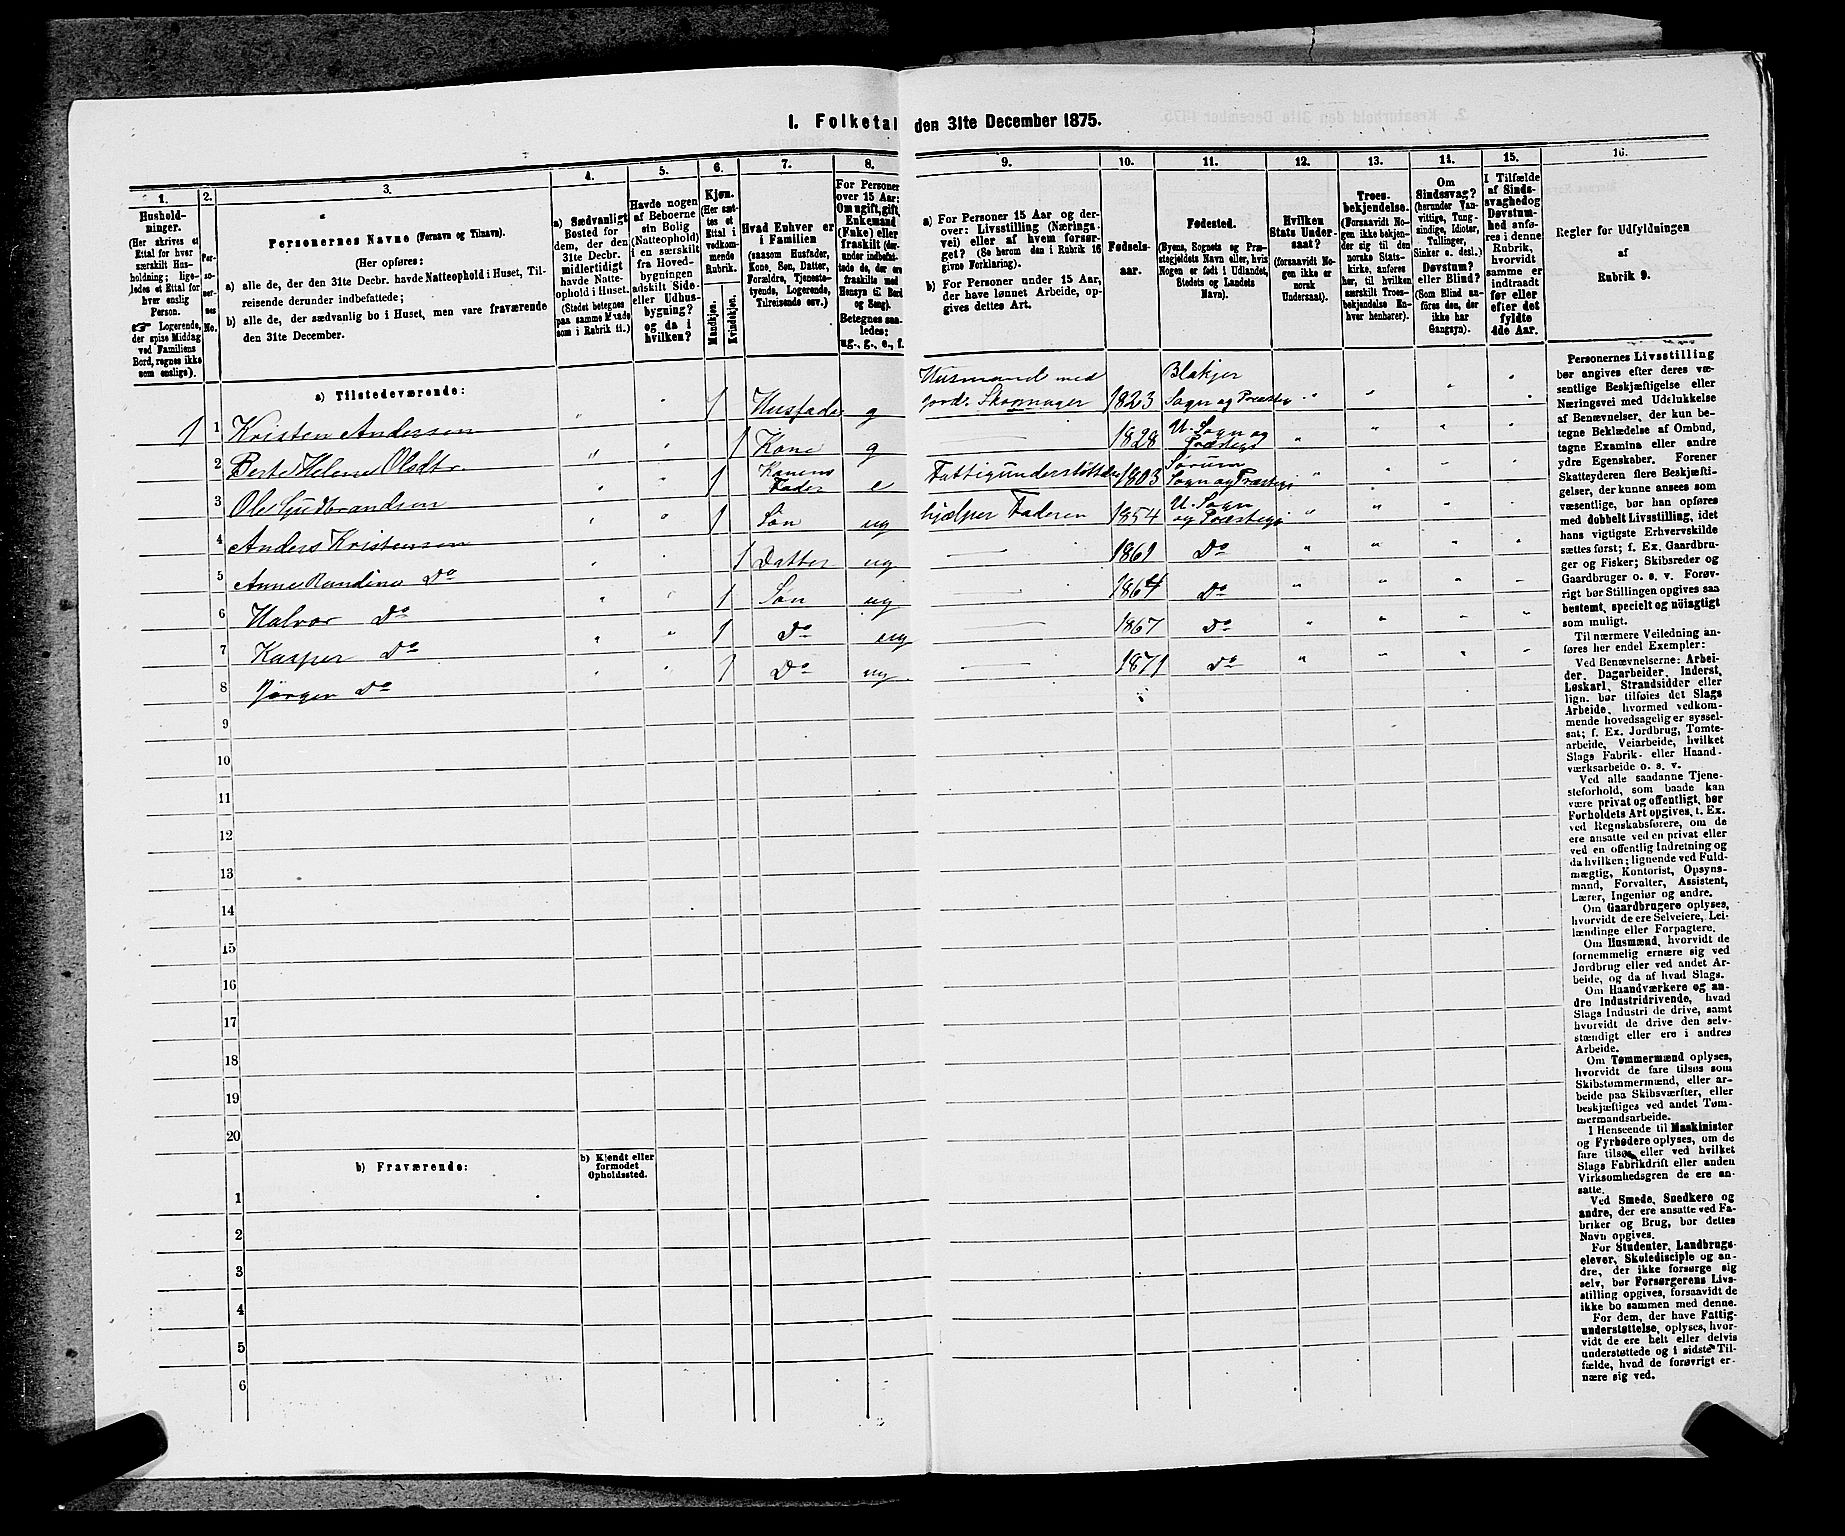 1. Folketal den 31te December 1875.
1.
2.
3.
4.
5.
6.
7.
8.
9.
10.
11.
12.
13.
14.
15.
16.
Hushold-
ninger.
(Her skrives et
Ettal for hver
særskilt Hus-
holdning; lige-
ledes et Ettal for
hver enslig
Person.
☞ Logerende,
der spise Middag
ved Familiens
Bord, regnes ikke
som enslige).
Per-
so-
ner-
nes
No.
Personernes Navne (Fornavn og Tilnavn).
(Her opføres:
a) alle de, der den 31te Decbr. havde Natteophold i Huset, Til-
reisende derunder indbefattede;
b) alle de, der sædvanlig bo i Huset, men vare fraværende
den 31te December.
a) Sædvanligt
Bosted for
dem, der den
31te Decbr.
midlertidigt
havde Natte-
ophold i Huset.
(Stedet betegnes
paa samme Maade
som i Rubrik 11.)
Havde nogen
af Beboerne
sin Bolig
(Natteophold)
i en særskilt
fra Hoved-
bygningen
adskilt Side-
eller Udhus-
bygning?
og da i
hvilken?
Kjøn.
(Her sæt-
tes et
Ettal i
vedkom-
mende
Rubrik.
Mandkjøn.
Kvindekjøn.
Hvad Enhver er
i Familien
(saasom Husfader,
Kone, Søn, Datter,
Forældre, Tjeneste-
tyende, Logerende,
Tilreisende osv.)
For Personer
over 15 Aar:
Om ugift, gift,
Enkemand
(Enke) eller
fraskilt (der-
under indbefat-
tede de, der ere
fraskilte med
Hensyn til Bord
og Seng).
Betegnes saa-
ledes:
ug., g., e., f.
a) For Personer 15 Aar og der-
over: Livsstilling (Nærings-
vei) eller af hvem forsør-
get? (Se herom den i Rubrik 16
givne Forklaring).
b) For Personer under 15 Aar,
der have lønnet Arbeide, op-
gives dettes Art.
Fødsels-
aar.
Fødested.
(Byens, Sognets og Præ-
stegjeldets Navn eller, hvis
Nogen er født i Udlandet,
Stedets og Landets
Navn).
Hvilken
Stats Under-
saat?
(forsaavidt No-
gen ikke er
norsk
Undersaat).
Troes-
bekjendelse.
(Forsaavidt No-
gen ikke bekjen-
der sig til den
norske Stats-
kirke, anføres
her, til hvilken
særskilt Troes-
bekjendelse En-
hver henhører).
Om
Sindssvag?
(herunder Van-
vittige, Tung-
sindige, Idioter,
Tullinger,
Sinker o. desl.)
Døvstum?
eller Blind?
(Som Blind an-
føres den, der
ikke har
Gangsyn).
I Tilfælde
af Sinds-
svaghed og
Døvstum-
hed anfø-
res i denne
Rubrik,
hvorvidt
samme er
indtraadt
før eller
efter det
fyldte
4de Aar.
Regler for Udfyldningen
af
Rubrik 9.
a) Tilstedeværende:
1 1 Kristen Andersen " " 1 Husfader g Husmand med Jord. Skomager 1823 Blakjer Sogn og Præstegj " " " "
2 Berte Helene Olsdtr. " " 1 Kone g — 1828 U. Sogn og Præstegj " " " "
3 Ole Gudbrandsen " " 1 Konens Fader e Fattigunderstøttelse 1803 Sørum Sogn og Præstegj " " " "
4 Anders Kristensen " " 1 Søn ug hjælper Faderen 1854 U. Sogn og Præstegj " " " "
5 Anne Randine Do " " 1 Datter ug — 1861 Do " " " "
6 Halvor Do " " 1 Søn ug — 1864 Do " " " "
7 Kasper Do " " 1 Do ug — 1867 Do " " " "
8 Jørgen Do " " 1 Do ug. — 1871 Do " " " "
9
10
11
12
13
14
15
16
17
18
19
20
b) Fraværende:
b) Kjendt eller
formodet
Opholdssted.
1
2
3
4
5
6
Personernes Livsstilling
bør angives efter deres væ-
sentlige Beskjæftigelse eller
Næringsvei med Udelukkelse
af Benævnelser, der kun be-
tegne Beklædelse af Ombud,
tagne Examina eller andre
ydre Egenskaber. Forener
Skatteyderen flere Beskjæfti-
gelser, der kunne ansees som
væsentlige, bør han opføres
med dobbelt Livsstilling, idet
hans vigtigste Erhvervskilde
sættes først; f. Ex. Gaardbru-
ger og Fisker; Skibsreder og
Gaardbruger o. s. v. Forøv-
rigt bør Stillingen opgives saa
bestemt, specielt og nöiagtigt
som muligt.
Til nærmere Veiledning an-
føres her endel Exempler:
Ved Benævnelserne: Arbei-
der, Dagarbeider, Inderst,
Løskarl, Strandsidder eller
lign. bør tilføies det Slags
Arbeide, hvormed vedkom-
mende hovedsagelig er syssel-
sat; f. Ex. Jordbrug, Tomte-
arbeide, Veiarbeide, hvilket
Slags Fabrik- eller Haand-
værksarbeide o. s. v.
Ved alle saadanne Tjene-
steforhold, som baade kan
være privat og offentligt, bør
Forholdets Art opgives, t. Ex.
ved Regnskabsførere, om de
ere ansatte ved en privat eller
ved en offentlig Indretning og
da hvilken; lignende ved Fuld-
mægtig, Kontorist, Opsyns-
mand, Forvalter, Assistent,
Lærer, Ingeniør og andre.
Om Gaardbrugere oplyses,
hvorvidt de ere Selveiere, Lei-
lændinge eller Forpagtere.
Om Husmænd, hvorvidt de
fornemmelig ernære sig ved
Jordbrug eller ved andet Ar-
beide, og da af hvad Slags.
Om Haandværkere og an-
dre Industridrivende, hvad
Slags Industri de drive, samt
hvorvidt de drive den selv-
stændigt eller ere i andres
Arbeide.
Om Tømmermænd oplyses,
hvorvidt de fare tilsøs som
Skibstømmermænd, eller ar-
beide paa Skibsværfter, eller
beskjæftiges ved andet Tøm-
mermandsarbeide.
I Henseende til Maskinister
og Fyrbødere oplyses, om de
fare tilsøs eller ved hvilket
Slags Fabrikdrift eller anden
Virksomhedsgren de ere an-
satte.
Ved Smede, Snedkere og
andre, der ere ansatte ved Fa-
briker og Brug, bør dettes
Navn opgives.
For Studenter, Landbrugs-
elever, Skoledisciple og an-
dre, der ikke forsørge sig
selv, bør Forsørgerens Livs-
stilling opgives, forsaavidt de
ikke bo sammen med denne.
For dem, der have Fattig-
understøttelse, oplyses, hvor-
vidt de ere helt eller delvis
understøttede og i sidste Til-
fælde, hvad de forøvrigt er-
nære sig ved.